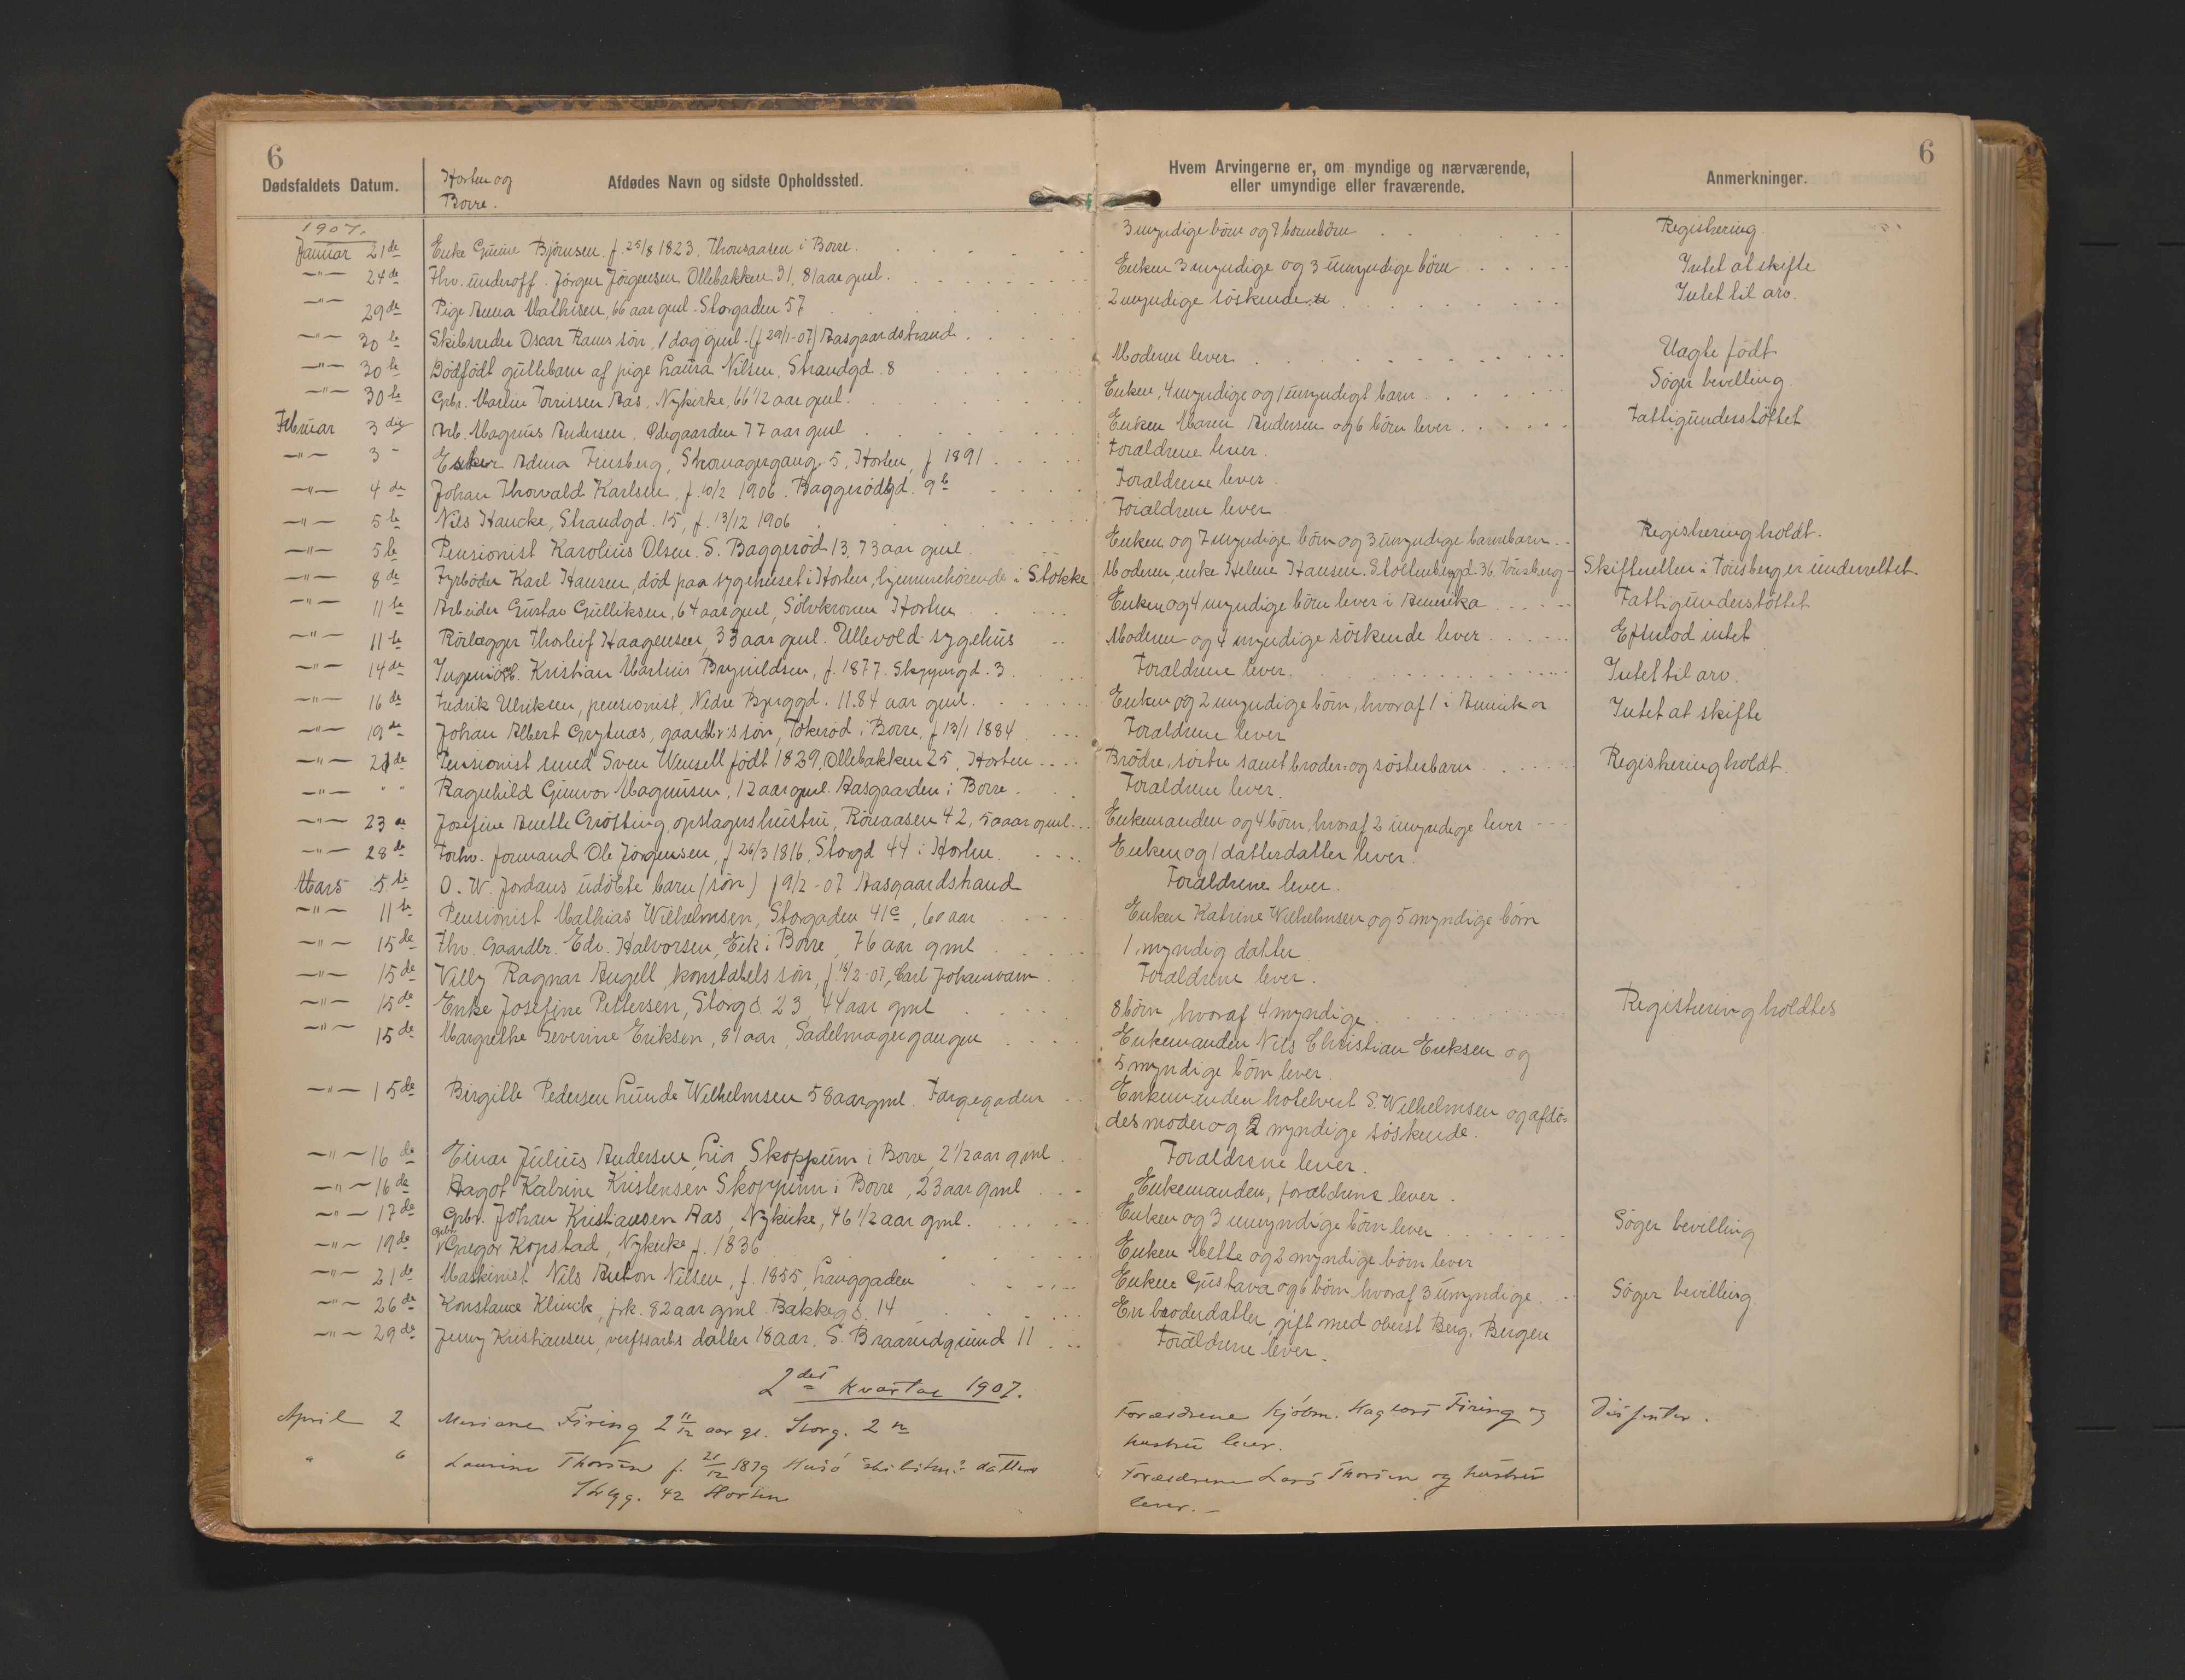 6
6
Dødsfaldets Datum.
Horten og
Borre.
Afdødes Navn og sidste Opholdssted.
Hvem Arvingerne er, om myndige og nærværende,
eller umyndige eller fraværende.
Anmerkninger.
1907.
Januar 21de Enke Gurine Bjørnsen f. 25/8 1823, Thorsaasen i Borre. 3 myndige børn og 2 børnebørn Registrering.
—"— 24de Fhv. underoff. Jørgen Jørgensen Ollebakken 31, 81 aar gml. Enken 3 myndige og 3 umyndige børn Intet at skifte
—"— 29de Pige Anna Mathisen, 66 aar gml. Storgaden 57 2 myndige söskende Intet til arv.
—"— 30te Skibsreder Oscar Raus sön, 1 dag gml. (f 29/1-07) Aasgaardstrand.
—"— 30te Dödfödt guttebarn af pige Laura Nilsen, Strandgd. 8 Moderen lever Uagte födt
—"— 30te Gbr. Martin Torrissen Aas, Nykirke, 66 1/2 aar gml. Enken, 4 myndige og 1 umyndigt barn Søger bevilling.
Februar 3die Arb. Magnus Andersen, Ødegaarden 77 aar gml Enken Maren Andersen og 6 börn lever Fattigunderstöttet
—"— 3 - Ester Adma Finsberg, Skomagergang. 5, Horten, f 1891 Forældrene lever.
—"— 4de Johan Thorvald Karlsen, f. 10/2 1906. Baggerödgd. 9b Forældrene lever.
—"— 5te Nils Hancke, Strandgd. 15, f. 13/12 1906 Forældrene lever
—"— 5te Pensionist Karolius Olsen S. Baggeröd 13, 73 aar gml. Enken og 7 myndige börn og 3 umyndige barnebarn Registrering holdt.
—"— 8de Fyrböder Karl Hansen, död paa sygehuset i Horten, hjemmehörende i Stokke Moderen, enke Helene Hansen. S. Stoltenbergd. 36. Tönsberg - Skifteretten i Tönsberg er underrettet.
—"— 11te Arbeider Gustav Gulliksen, 64 aar gml, Sölvkronen Horten Enken og 4 myndige börn lever i Amerika Fattigunderstöttet
—"— 11te Rörlægger Thorleif Haagensen, 33 aar gml. Ullevold sygehus Moderen og 4 myndige söskende lever Efterlod intet
—"— 14de Ingeniörb. Kristian Marlius Brynildsen, f. 1877. Skippergd. 3. Forældrene lever. Intet til arv.
—"— 16de Fredrik Ulriksen, pensionist, Nedre Bjerggd. 11. 84 aar gml. Enken og 2 myndige börn, hvoraf 1 i Amerika Intet at skifte
—"— 19de Johan Albert Grytnæs, gaardbr.s sön, Tokeröd i Borre, f 13/1 1884 Forældrene lever
—"— 21de Pensionist smed Sven Wensell födt 1839, Ollebakken 25, Horten Brödre, söstre samt broder- og söstersbarn Registrering holdt.
—"— " " Ragnhild Gunvor Magnusen, 12 aar gml. Aasgaarden i Borre. Forældrene lever.
—"— 23de Josefine Anette Grötting, opslagers hustru, Rönaasen 42, 50 aar gml. Enkemanden og 4 börn, hvoraf 2 umyndige lever
—"— 28de Forhv. formand Ole Jörgensen, f 26/3 1816, Storgd 44 i Horten. Enken og 1 datterdatter lever.
Mars 5te O. W. Jordans udöbte barn (sön) f 9/2-07 Aasgaardstrand Forældrene lever.
—"— 11te Pensionist Mathias Wilhelmsen, Storgaden 41c, 60 aar Enken Katrine Wilhelmsen og 5 myndige börn
—"— 15de Fhv. Gaardbr. Edv. Halvorsen, Eik i Borre, 76 aar gml 1 myndig datter
—"— 15de Villy Ragnar Angell, konstabels sön, f 16/2-07, Carl Johansværn Forældrene lever.
—"— 15de Enke Josefine Pettersen, Storgd. 23, 44 aar gml 8 börn, hvoraf 4 myndige Registrering holdtes
—"— 15de Margrethe Severine Eriksen, 81 aar, Sadelmagergangen Enkemanden Nils Christian Eriksen og
5 myndige börn lever.
—"— 15de Birgitte Pedersen Lunde Wilhelmsen 58 aar gml. Fargegaden Enkemanden hotelvert S. Wilhelmsen og afdö-
des moder og 2 myndige söskende.
—"— 16de Einar Julius Andersen, Lia, Skoppum i Borre, 2 1/2 aar gml Forældrene lever.
—"— 16de Dagot Katrine Kristensen Skoppum i Borre, 23 aar gml Enkemanden, forældrene lever.
—"— 17de Gbr. Johan Kristiansen Aas, Nykirke, 46 1/2 aar gml. Enken og 3 umyndige börn lever Søger bevilling
—"— 19de Gbr. Gregor Kopstad, Nykirke f. 1836 Enken Mette og 2 myndige börn lever
—"— 21de Maskinist Nils Anton Nilsen, f. 1855, Langgaden Enken Gustava og 6 börn, hvoraf 3 umyndige Søger bevilling.
—"— 26de Konstance Klinck, frk. 82 aar gml Bakkegd. 14 En broderdatter gift med oberst Berg, Bergen
—"— 29de Jenny Kristiansen, verftsarbs datter 18 aar, S. Braarudgrund 11 Forældrene lever.
2det Kvartal 1907.
April 2 Mariane Firing 2 11/12 aar gl. Storg. 2 Forældrene Kjøbm. Firing og Dissenter.
hustru lever.
" 6 Laurine Thorsen f. 21/12 1879 datter Forældrene Lars Thorsen og hustru
42 Horten lever. -